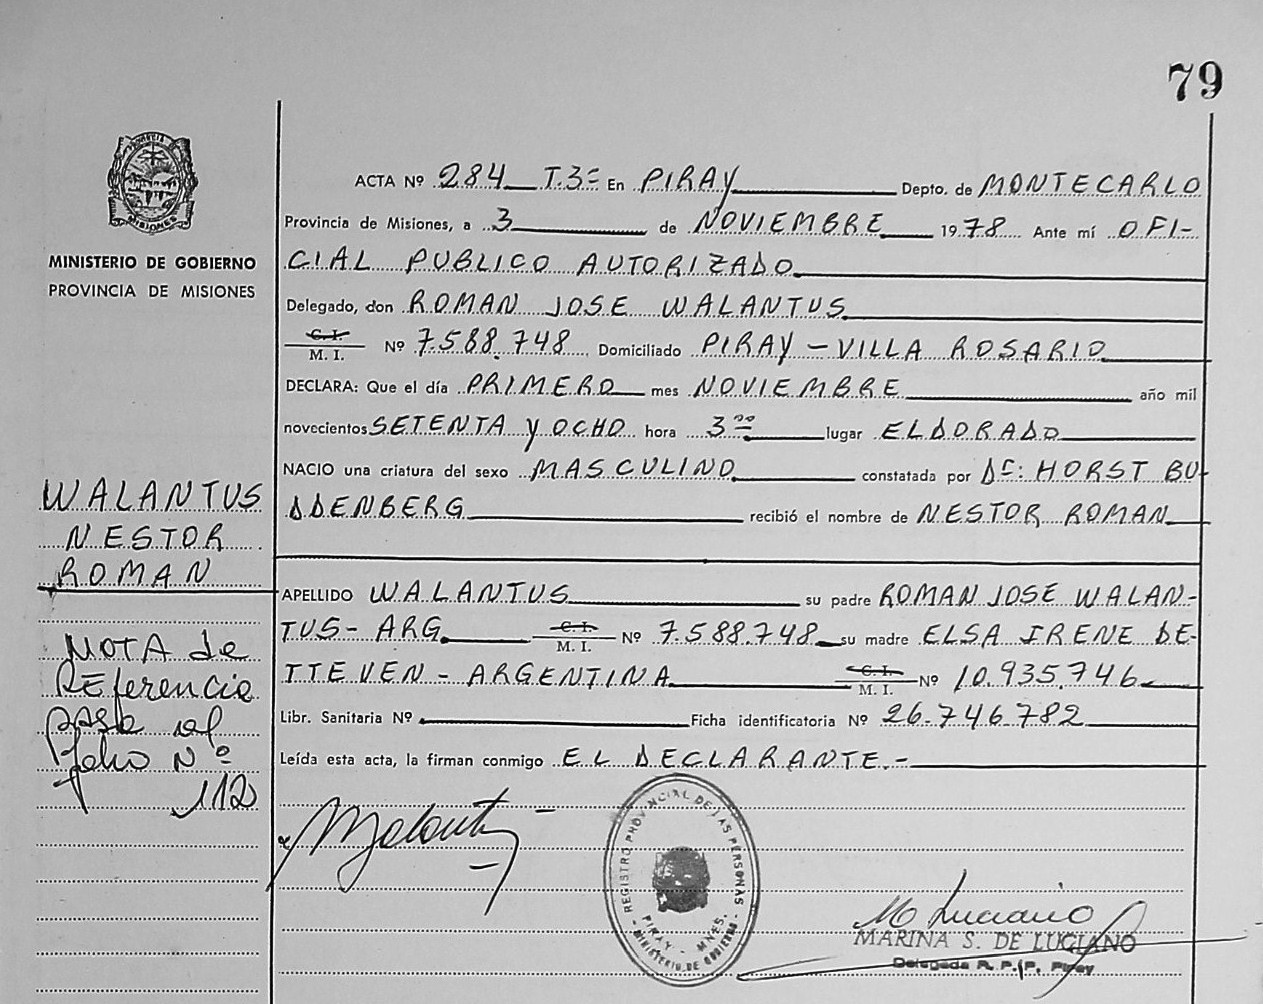 79
MINISTERIO DE GOBIERNO
PROVINCIA DE MISIONES
WALANTUS
NESTOR
ROMAN
NOTA de
REferencia
pase al
folio Nº
112
ACTA Nº 284 T.3º En PIRAY Depto. de MONTECARLO
Provincia de Misiones, a 3 de NOVIEMBRE 1978 Ante mí OFI-
CIAL PUBLICO AUTORIZADO
Delegado, don ROMAN JOSE WALANTUS
C. I.
M. I. Nº 7.588.748 Domiciliado PIRAY - VILLA ROSARIO
DECLARA: Que el día PRIMERO mes NOVIEMBRE año mil
novecientos SETENTA y OCHO hora 3.00 lugar ELDORADO
NACIO una criatura del sexo MASCULINO constatada por Dr: HORST BU-
DDENBERG recibió el nombre de NESTOR ROMAN
APELLIDO WALANTUS su padre ROMAN JOSE WALAN-
TUS - ARG. C. I. M. I. Nº 7.588.748 su madre ELSA IRENE DE-
TTEVEN - ARGENTINA C. I. M. I. Nº 10.935.746
Libr. Sanitaria Nº Ficha identificatoria Nº 26.746.782
Leída esta acta, la firman conmigo EL DECLARANTE.-
REGISTRO PROVINCIAL DE LAS PERSONAS
PIRAY - MNES.
MINISTERIO DE GOBIERNO
M Luciano
MARINA S. DE LUCIANO
Delegada R. P. P. Piray